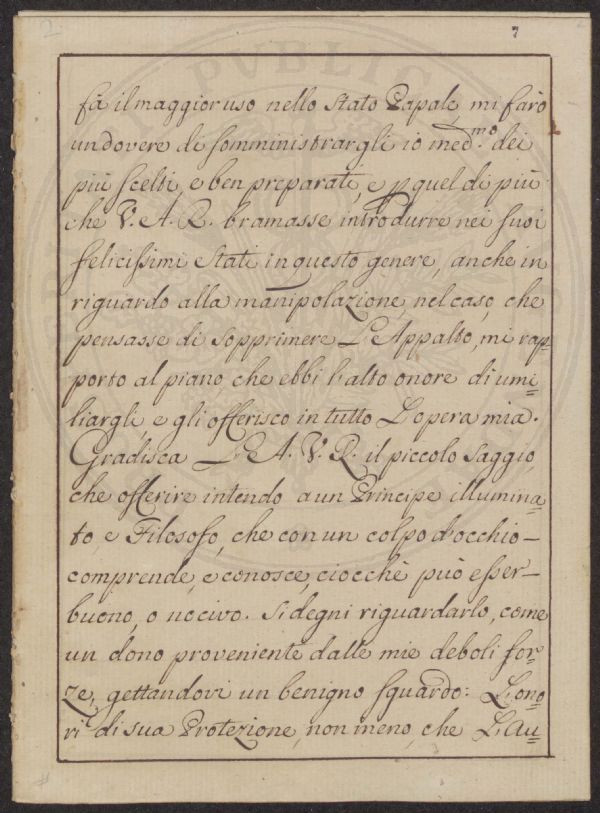 2
7
fà il maggior uso nello Stato Papale, mi farò
un dovere di somministrargli io med.mo dei
più scelti, e ben preparati, e p quel di più
che V. A. R. bramasse introdurre nei suoi
felicissimi Stati in questo genere, anche in
riguardo alla manipolazione, nel caso, che
pensasse di sopprimere L'Appalto, mi rap=
porto al piano che ebbi l'alto onore di umi=
liargli e gli offerisco in tutto L'opera mia.
Gradisca L'A. V. R. il piccolo saggio,
che offerire intendo a un Principe illumina=
to, e Filosofo, che con un colpo d'occhio–
comprende, e conosce, ciocchè può esser–
buono, o nocivo. Si degni riguardarlo, come
un dono proveniente dalle mie deboli for=
ze, gettandovi un benigno sguardo: L'ono=
ri di sua Protezione, non meno, che L'Au=
PVBLIC